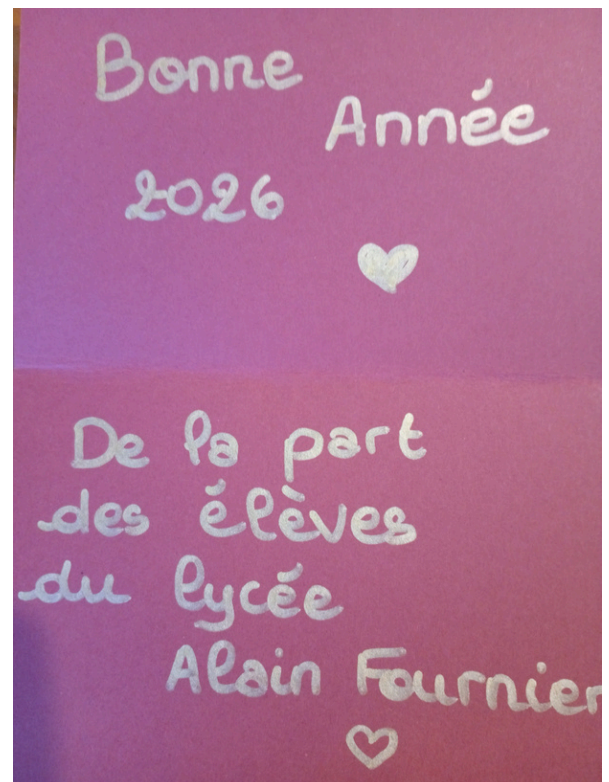 Bonne
Année
2026
De la part
des élèves
du lycée
Alain Fournier